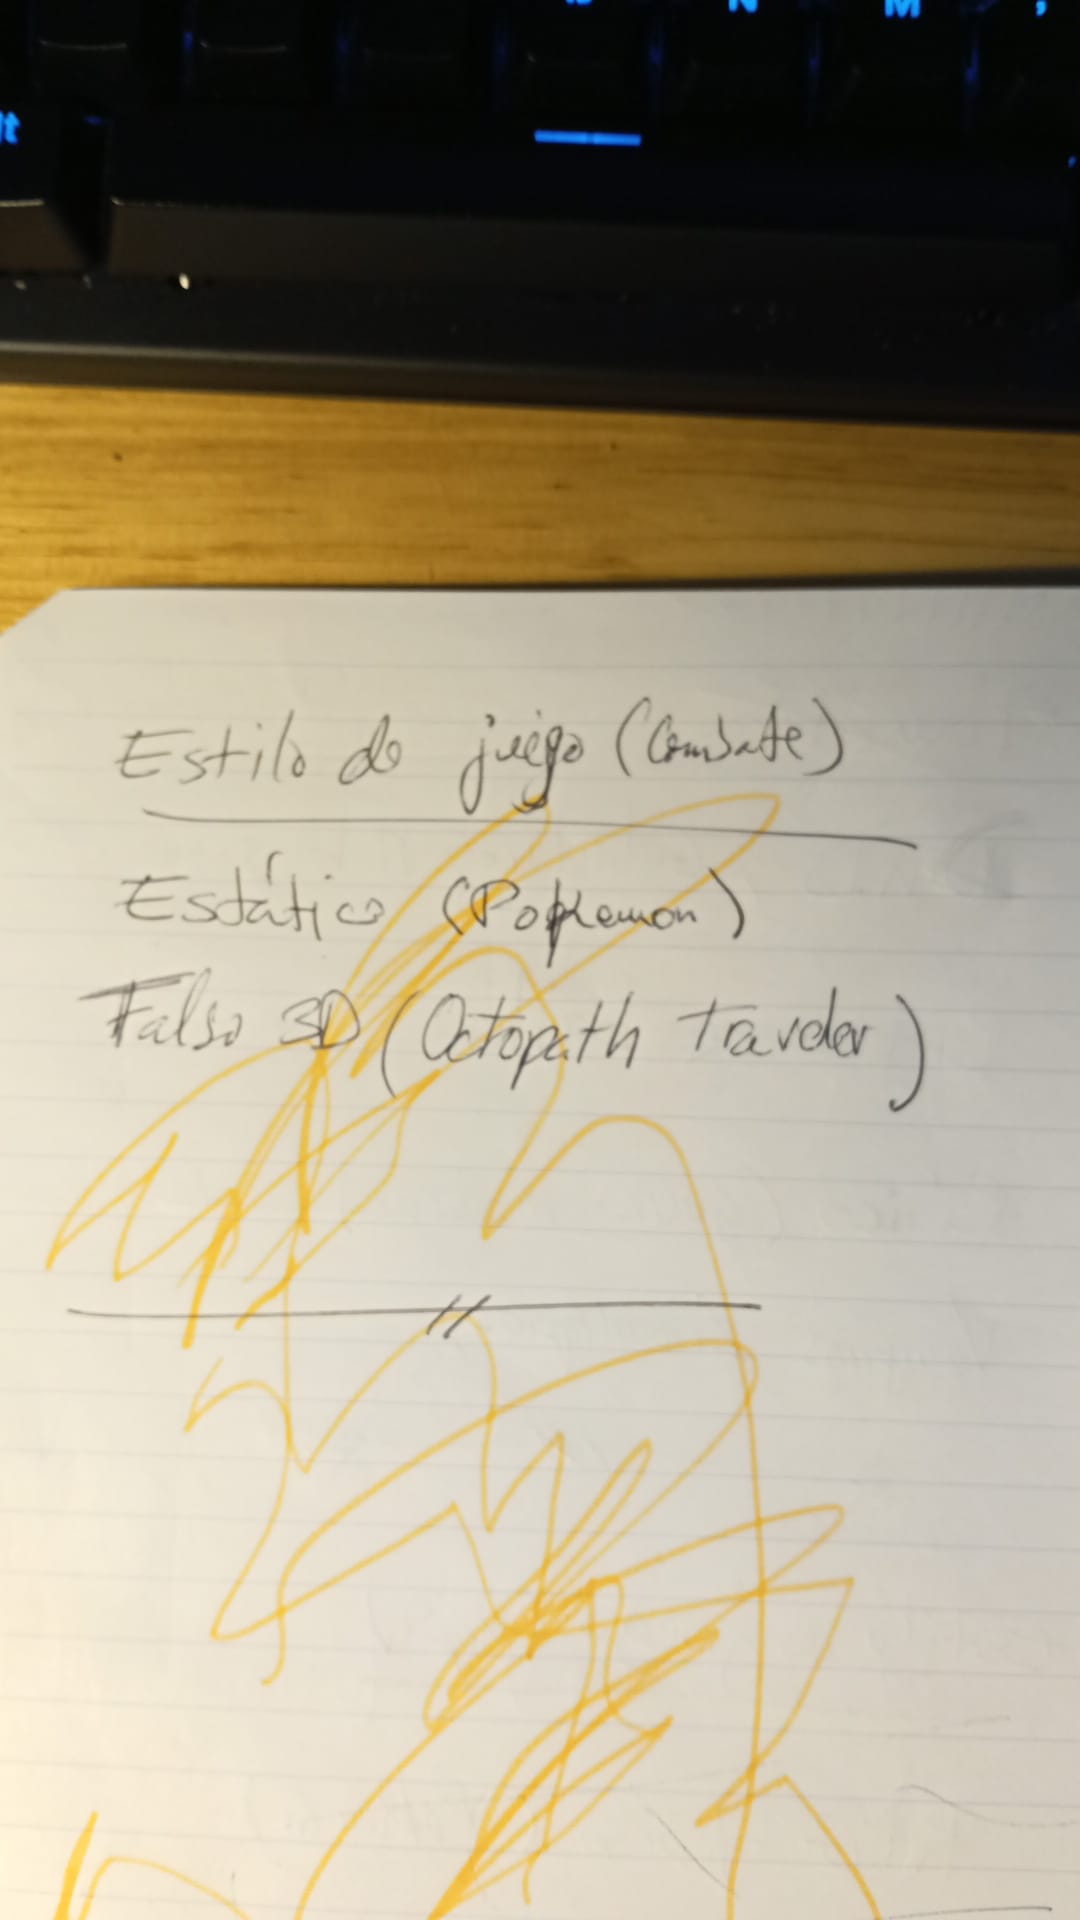 N M ,
lt
Estilo de juego (Combate)
Estático (Pokemon)
Falso 3D (Octopath Traveler)